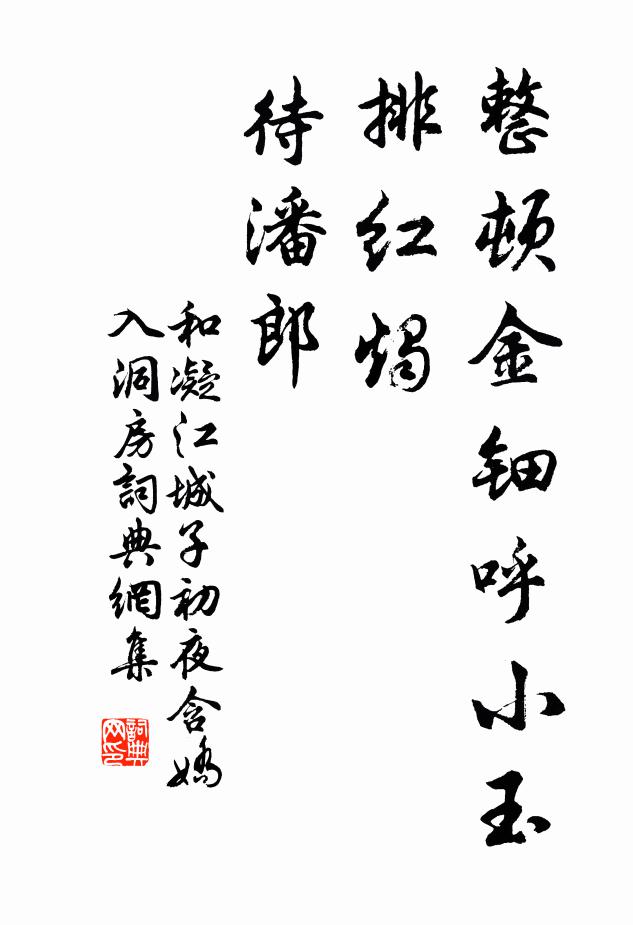 整頓金鈿呼小玉
排紅燭
待潘郎
和凝江城子初夜含嬌
入洞房詞典網集
詞典
网印